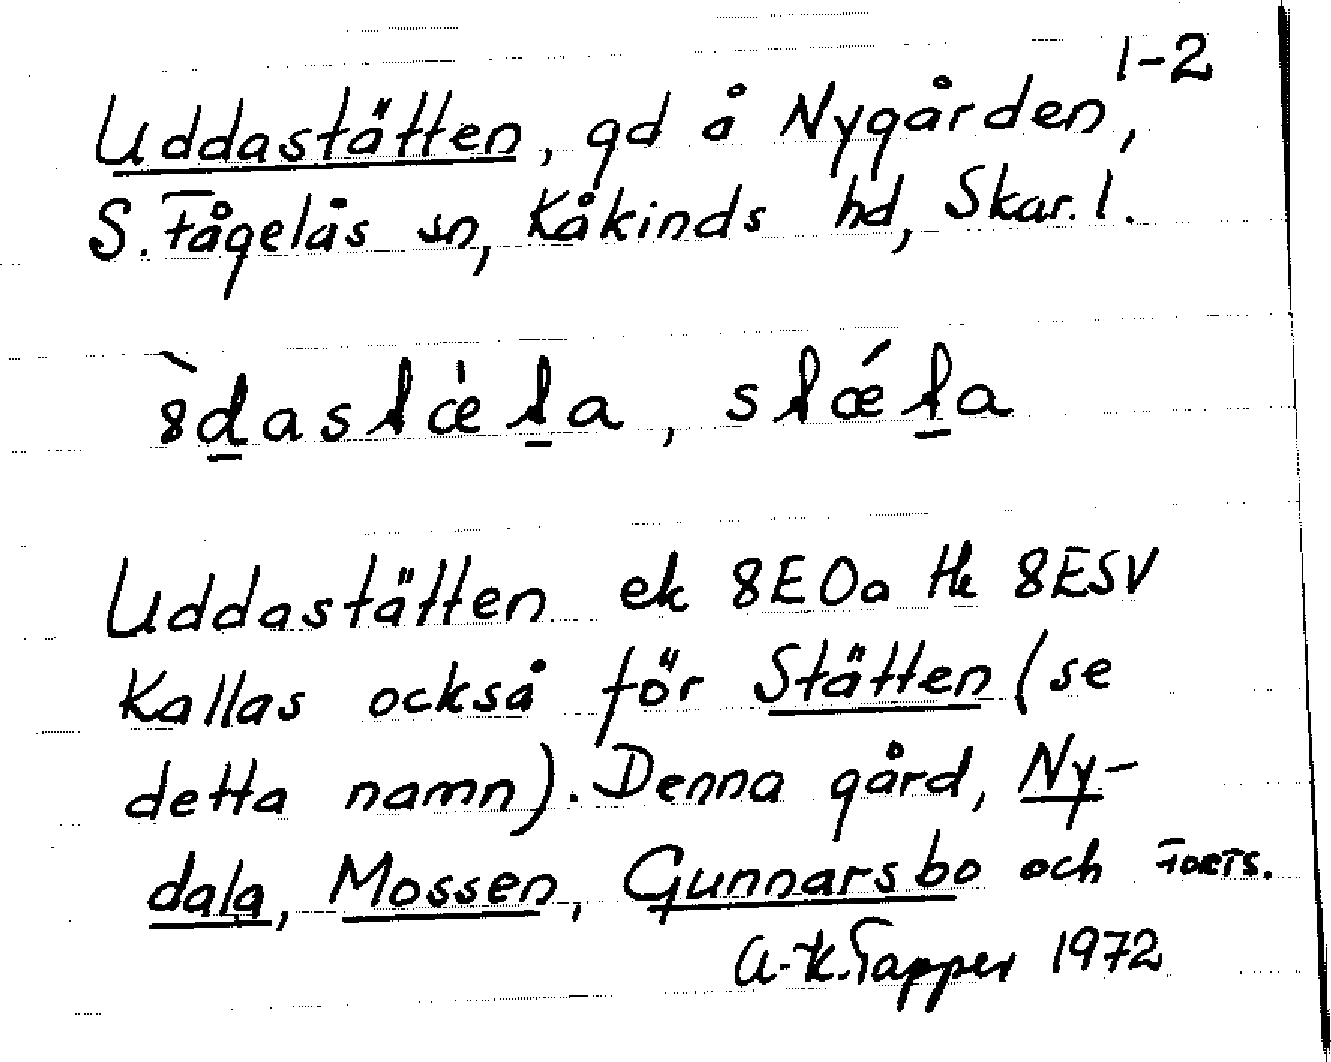 1-2
Uddastätten, gd å Nygården,
S. Fågelås sn, Kåkinds hd, Skar. l.
Uddastätten ek 8E0a Hk 8ESV
Kallas också för Stätten (se
detta namn). Denna gård, Ny-
dala, Mossen, Gunnarsbo och Forts.
A-K. Tapper 1972